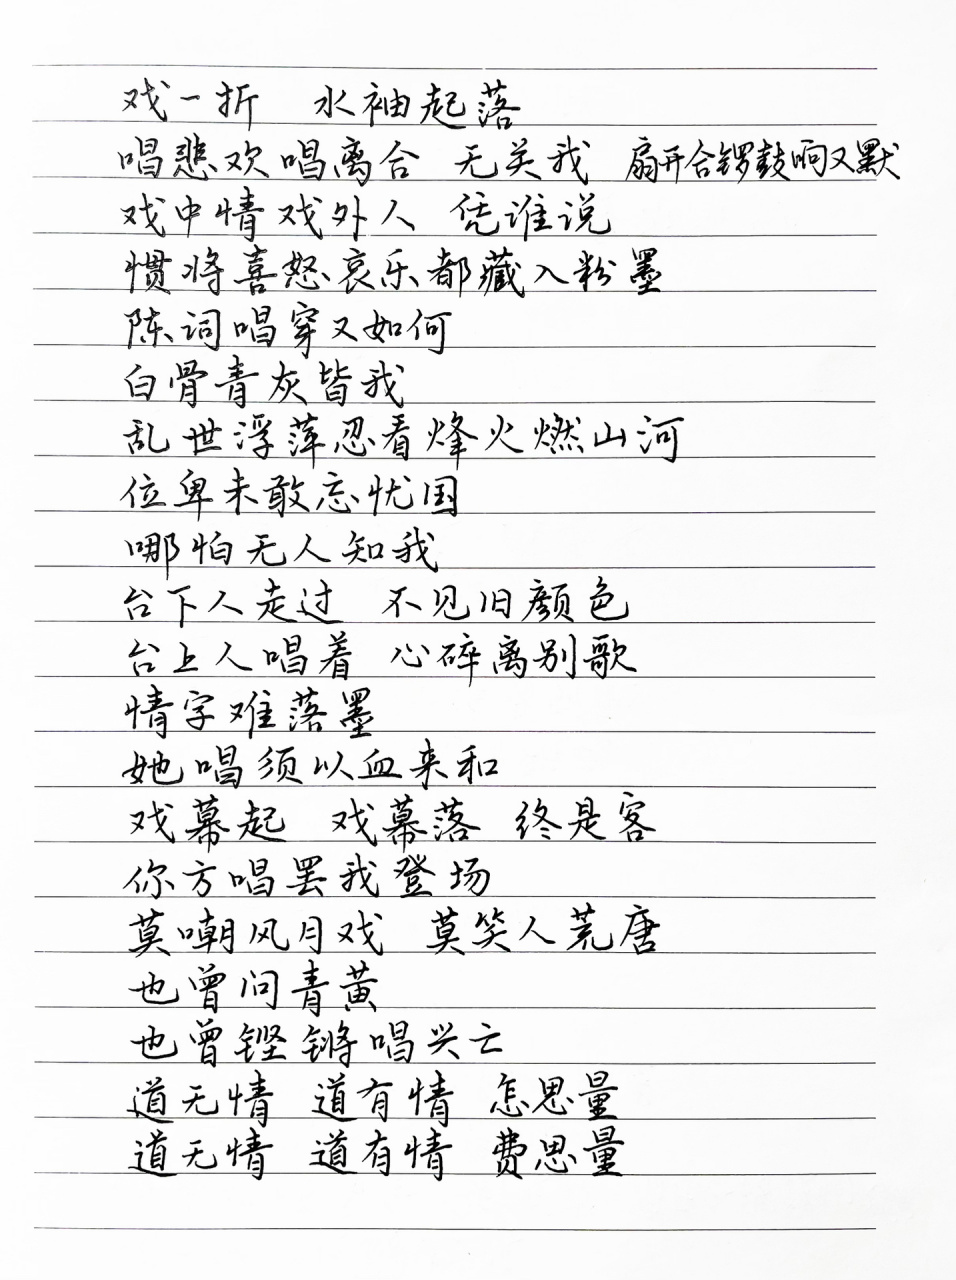 戏一折 水袖起落
唱悲欢唱离合 无关我 扇开合锣鼓响又默
戏中情戏外人 凭谁说
惯将喜怒哀乐都藏入粉墨
陈词唱穿又如何
白骨青灰皆我
乱世浮萍忍看烽火燃山河
位卑未敢忘忧国
哪怕无人知我
台下人走过 不见旧颜色
台上人唱着 心碎离别歌
情字难落墨
她唱须以血来和
戏幕起 戏幕落 终是客
你方唱罢我登场
莫嘲风月戏 莫笑人荒唐
也曾问青黄
也曾铿锵唱兴亡
道无情 道有情 怎思量
道无情 道有情 费思量